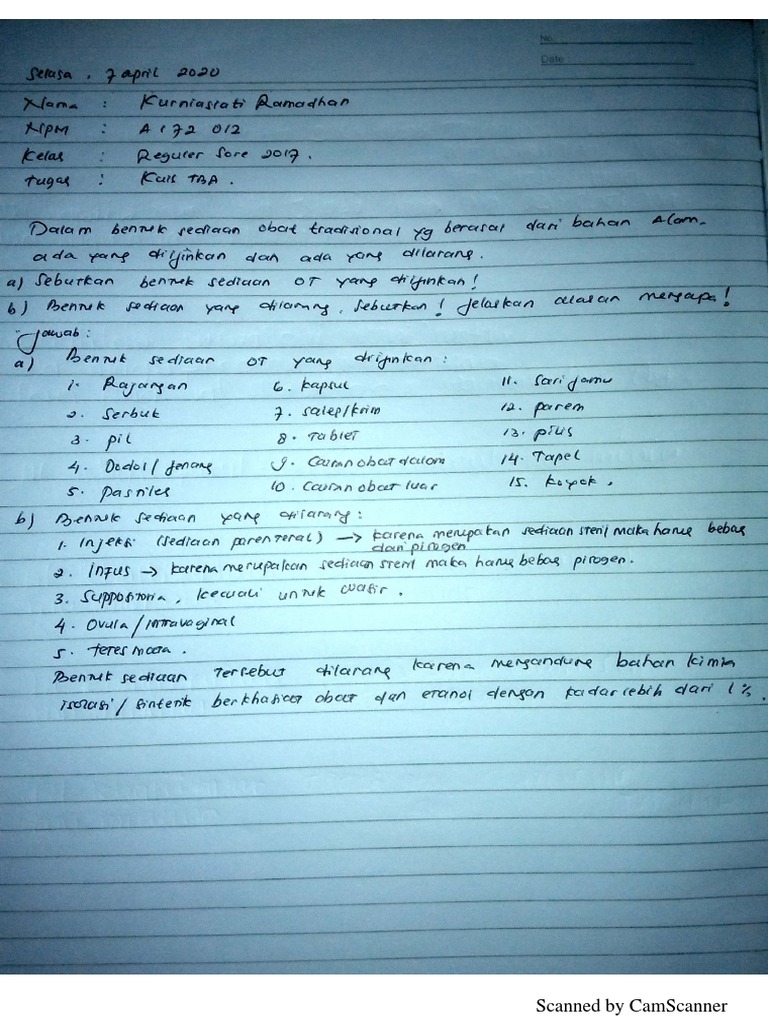 No.
Date
Selasa, 7 april 2020
Nama : Kurniasiati Ramadhan
NPM : A 172 012
Kelas : Reguler Sore 2017.
Tugas : Kuis TBA.
Dalam bentuk sediaan obat tradisional yg berasal dari bahan Alam.
ada yang diijinkan dan ada yang dilarang.
a) Seburkan bentuk sediaan OT yang diijinkan!
b) Bentuk sediaan yang dilarang, Seburkan! Jelaskan alasan mengapa!
Jawab:
a) Bentuk sediaan OT yang diijinkan :
1. Rajangan 6. kapsul 11. Sari jamu
2. Serbuk 7. salep/krim 12. parem
3. pil 8. Tablet 13. pilis
4. Dodol / Jenang 9. Cairan obat dalam 14. Tapel
5. pastiles 10. Cairan obat luar 15. Koyok.
b) Bentuk sediaan yang dilarang :
1. Injeksi (sediaan parenteral) → karena merupakan sediaan steril maka harus bebas
dari pirogen
2. Infus → karena merupakan sediaan steril maka harus bebas pirogen.
3. Suppositoria, kecuali untuk wasir.
4. Ovula / intravaginal
5. tetes mata.
Bentuk sediaan tersebut dilarang karena mengandung bahan kimia
isolasi / sintetik berkhasiat obat dan etanol dengan kadar lebih dari 1 %.
Scanned by CamScanner